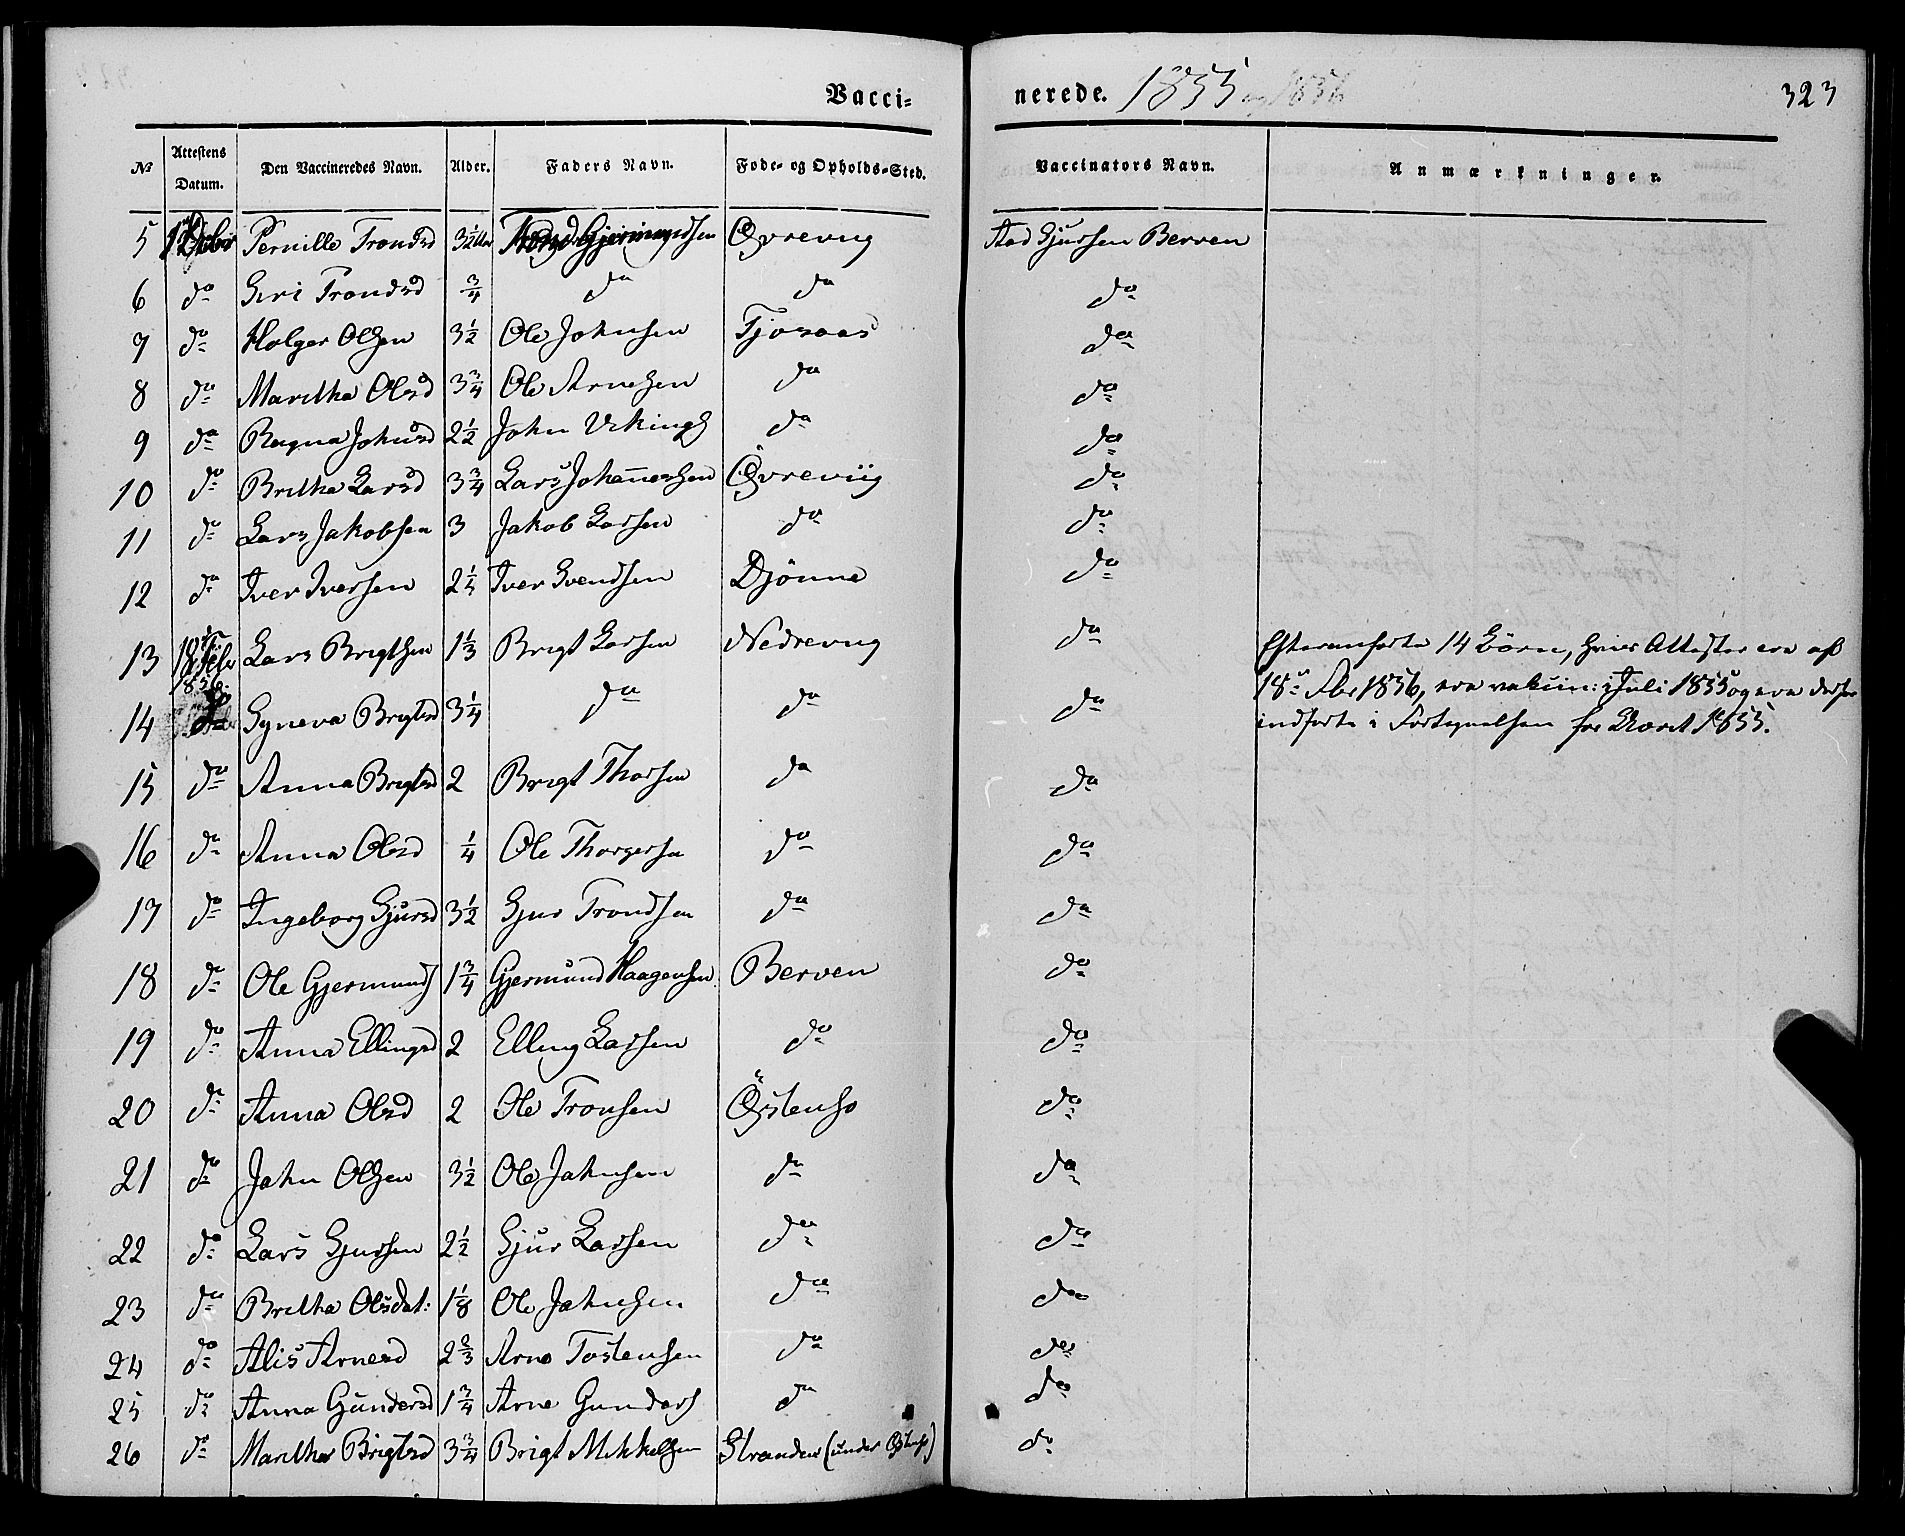 Vacci= nerede. 1855 og 1856 323
No Attestens Datum. Den Vaccineredes Navn. Alder. Faders Navn. Føde- og Opholds-Sted. Vaccinators Navn. Anmærkninger.
5 Pernille Trondsd 3½ Trond Gjermundsen Øvrevug Aad Gjursen Berven
6 do Guri Trondsd ¾ do do do
7 do Holger Olsen 3½ Ole Johnsen Tjoraas do
8 do Maritha Olsd 3¾ Ole Arnesen do do
9 do Ragna Johnsd 2½ John Vikings do do
10 do Britha Larsd 3¾ Lars Johannessen Øvreviig do
11 do Lars Jakobsen 3 Jakob Larsen do do
12 do Iver Iversen 2¼ Iver Svendsen Djönne do
13 18de Febr 1856. Lars Brigtsen 1⅓ Brigt Larsen Nedrevug do Efteranførte 14 Börn, hvis Attester ere af
14 do Syneva Brigtsd 3¼ do do do 18de Fbr 1856, ere vakcin: i Juli 1855 og ere derfor
indførte i Fortegnelsen for Aaret 1855.
15 do Anna Brigtsd 2 Brigt Thorsen do do
16 do Anna Olsd ¼ Ole Thorgersen do do
17 do Ingeborg Gjursd 3½ Gjur Trondsen do do
18 do Ole Gjermunds 1¾ Gjermund Haagensen Berven do
19 do Anna Ellingsd 2 Elling Larsen do do
20 do Anna Olsd 2 Ole Tronsen Östensø do
21 do John Olsen 3½ Ole Johnsen do do
22 do Lars Gjursen 2½ Gjur Larsen do do
23 do Britha Olsdat: 1⅛ Ole Johnsen do do
24 do Alis Arnesd 2⅔ Arne Tostensen do do
25 do Anna Gundersd 1¾ Arne Gunders do do
26 do Maritha Brigtsd 3¾ Brigt Mikkelsen Stranden (under Østensø) do